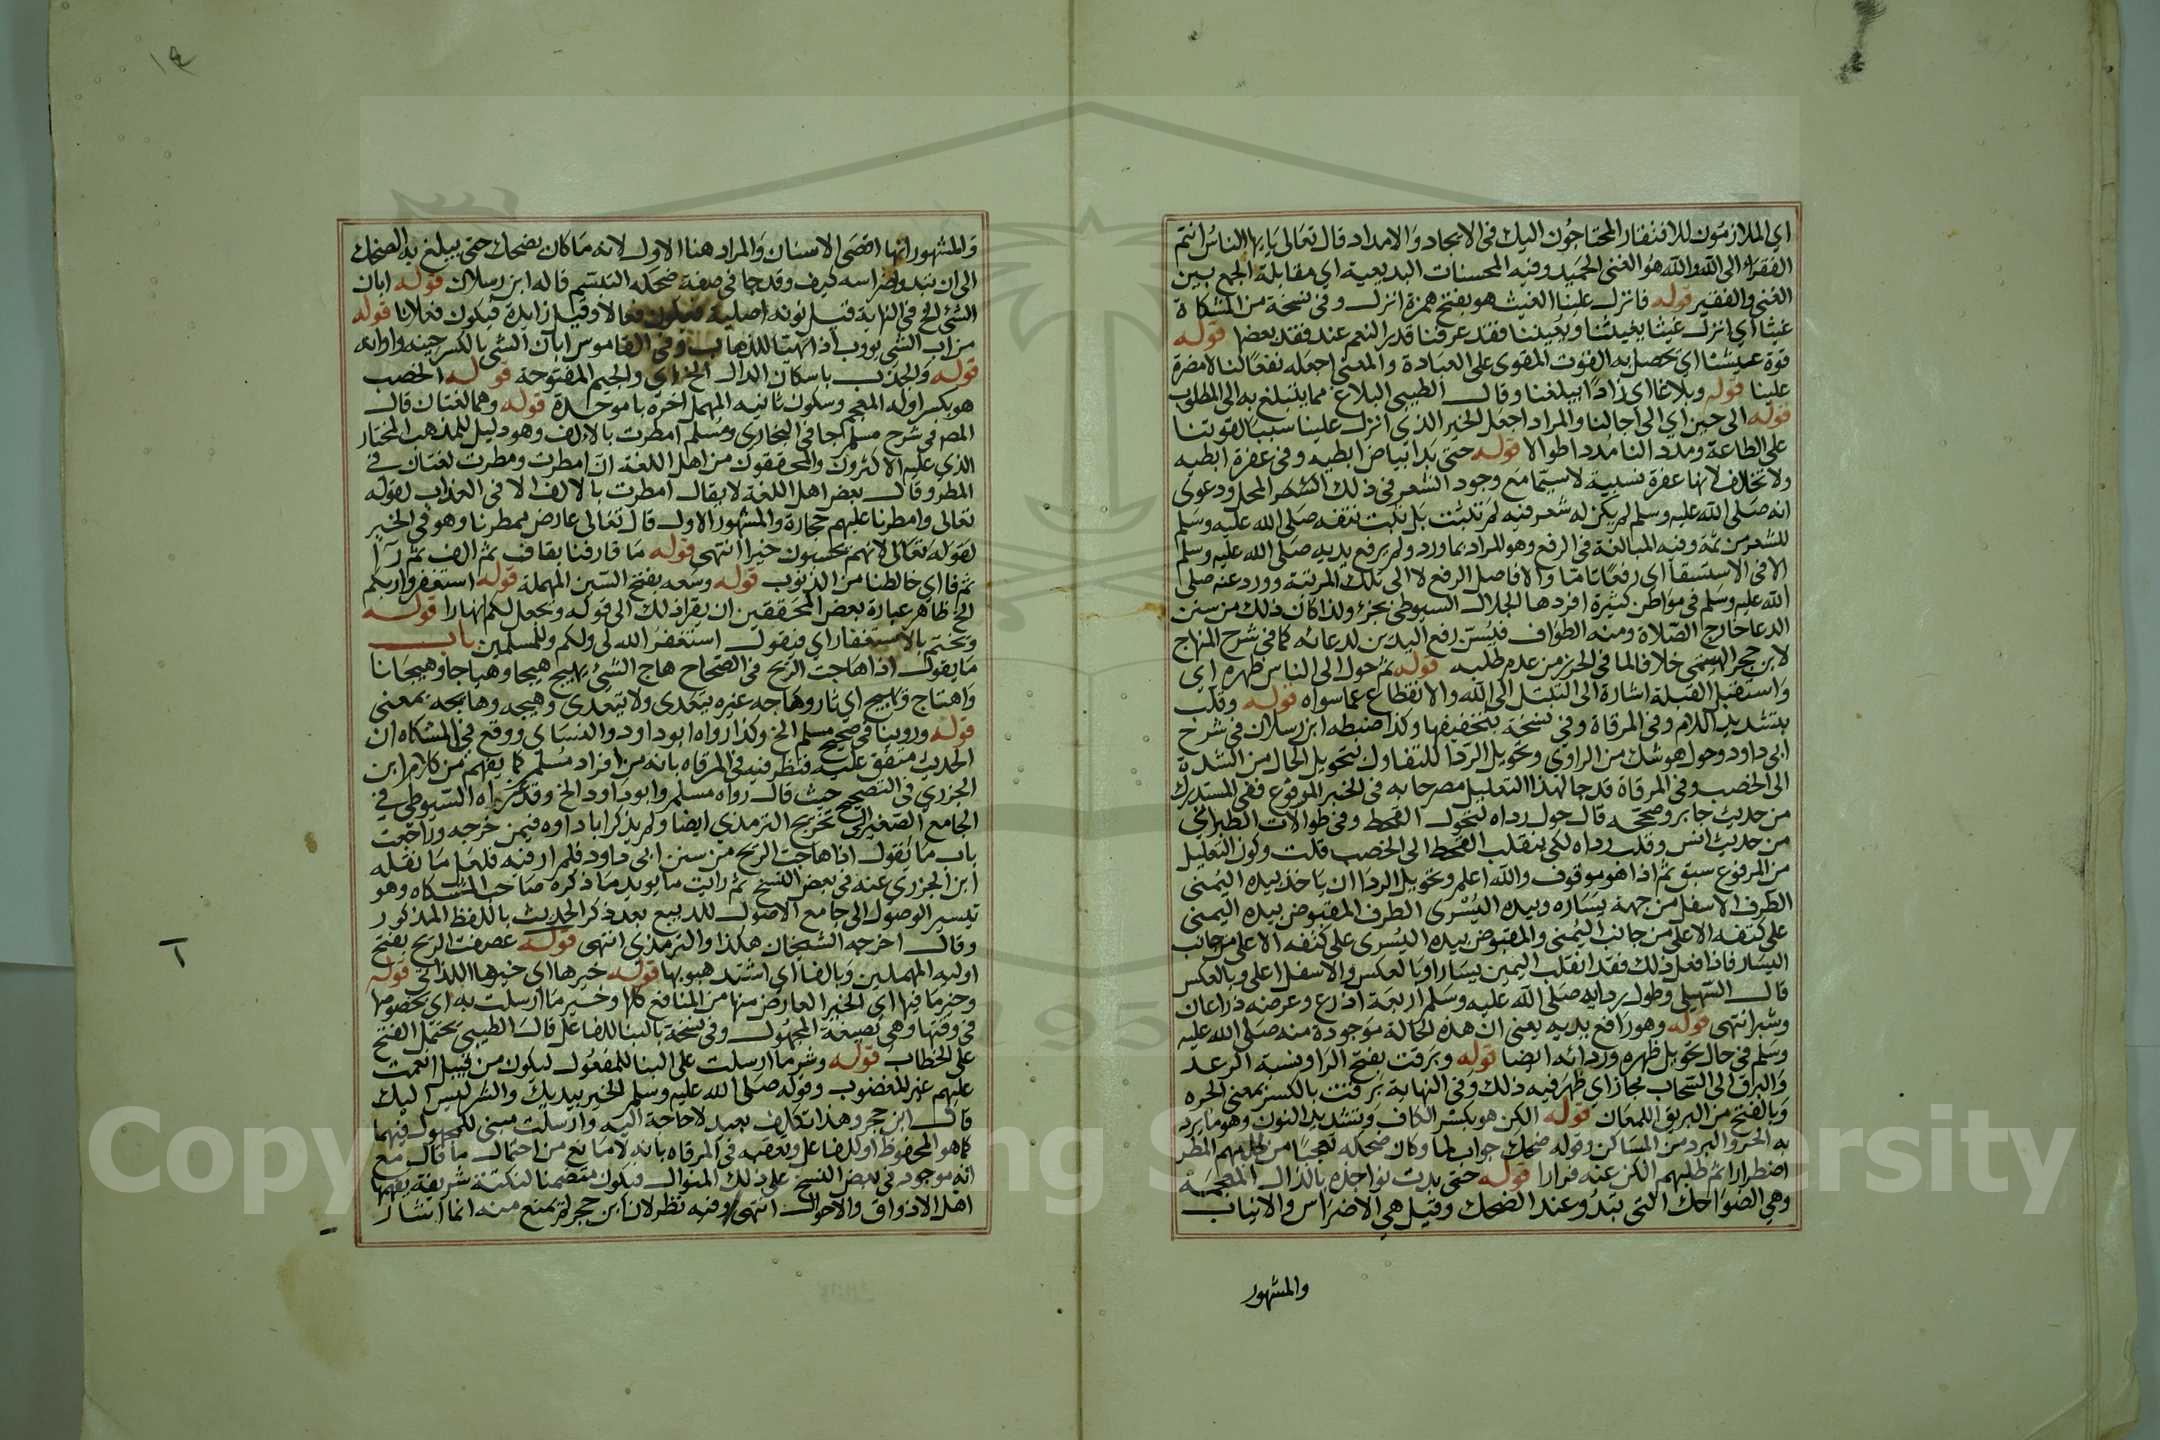 اي الملازمون للافتقار المحتاجون اليك في الايجاد والامداد قال تعالى يايها الناس انتم
الفقراء الى الله والله هو الغني الحميد وفيه المحسنات البديعية اي مقابلة الجمع بين
الغني والفقير قوله فانزل علينا الغيث هو بفتح همزة انزل وفي نسخة من المشكاة
غيثا اي انزل غيثا يغيثنا ويعيننا فقد عرفنا قدر النعم عند فقد بعضها قوله
قوة عيشنا اي يحصل به القوت المقوي على العبادة والمعنى اجعله نفعا لنا لا مضرة
علينا قوله وبلاغا اي زادا يبلغنا وقال الطيبي البلاغ مما يتبلغ به الى المطلوب
قوله الى حين اي الى اجالنا والمراد اجعل الخير الذي انزل علينا سببا لقوتنا
على الطاعة ومددا لنا مددا طوالا قوله حتى بدا بياض ابطيه وفي عفرة ابطيه
ولا تخالف لانها عفرة نسبية لا سيما مع وجود الشعر في ذلك الشعر المحل ودعوى
انه صلى الله عليه وسلم لم يكن له شعر فيه لم تثبت بل ثبت نتفه صلى الله عليه وسلم
للشعر من ثمة وفيه المبالغة في الرفع وهو المراد بما ورد ولم يرفع يديه صلى الله عليه وسلم
الا في الاستسقا اي رفعا تاما والا فاصل الرفع لا الى تلك المرتبة وورد عنه صلى
الله عليه وسلم في مواطن كثيرة افردها الجلال السيوطي بجزء ولذا كان ذلك من سنن
الدعا خارج الصلاة ومنه الطواف فيسن رفع اليدين لدعائه كما في شرح المنهاج
لابن حجر الهيتمي خلافا لما في الحرز من عدم طلبه قوله ثم حول الى الناس ظهره اي
واستقبل القبلة اشارة الى التبتل الى الله والانقطاع عما سواه قوله وقلب
بتشديد اللام وفي المرقاة وفي نسخة بتخفيفها وكذا ضبطه ابن رسلان في شرح
ابي داود وحول هو شك من الراوي وتحويل الردا للتفاول بتحويل الحال من الشدة
الى الخصب وفي المرقاة قد جا لهذا التعليل مصرحا به في الخبر المرفوع ففي المستدرك
من حديث جابر وصححه قال حول رداه ليتحول القحط وفي طوالات الطبراني
من حديث انس وقلب رداه لكي ينقلب القحط الى الخصب قلت وكون التعليل
من المرفوع سبق ثم اذا هو موقوف والله اعلم وتحويل الردا ان ياخذ بيده اليمنى
الطرف الاسفل من جهة يساره وبيده اليسرى الطرف المقبوض بيده اليمنى
على كتفه الاعلى من جانب اليمنى والمقبوض بيده اليسرى على كتفه الاعلى من جانب
اليسار فاذا فعل ذلك فقد انقلب اليمين يسارا وبالعكس والاسفل اعلى وبالعكس
قال السهيلي وطول ردايه صلى الله عليه وسلم اربعة اذرع وعرضه ذراعان
وشبر انتهى قوله وهو رافع يديه يعني ان هذه الحالة موجودة منه صلى الله عليه
وسلم في حال تحويل ظهره وردائه ايضا قوله وبرقت بفتح الرا ونسبة الرعد
والبرق الى السحاب مجاز اي ظهر فيه ذلك وفي النهاية برقت بالكسر بمعنى الحيرة
وبالفتح من البريق اللمعان قوله الكن هو بكسر الكاف وتشديد النون وهو ما يرد
به الحر والبرد من المساكن وقوله ضحك جواب لما وكان ضحكه تعجبا من طلبهم المطر
اضطرارا ثم طلبهم الكن عنه فرارا قوله حتى بدت نواجذه بالذال المعجمة
وهي الضواحك التي تبدو عند الضحك وقيل هي الاضراس والانياب
والمشهور
والمشهور انها اقصى الاسنان والمراد هنا الاول لانه ما كان يضحك حتى يبلغ به الضحك
الى ان تبدو اضراسه كيف وقد جا في صفة ضحكه التبسم قاله ابن رسلان قوله ابان
الشي الخ في النهاية قيل نونه اصلية فيكون فعالا وقيل زايدة فيكون فعلانا قوله
من اب الشي يووب اذا تهيا للذهاب وفي القاموس ابان الشي بالكسر حينه واوانه
قوله والجدب باسكان الدال الخ اي والجيم المفتوحة قوله الخصب
هو بكسر اوله المعجم وسكون ثانيه المهمل اخره با موحدة قوله وهما لغتان قال
المصـ في شرح مسلم جا في البخاري ومسلم امطرت بالالف وهو دليل للمذهب المختار
الذي عليه الاكثرون والمحققون من اهل اللغة ان امطرت ومطرت لغتان في
المطر وقال بعض اهل اللغة لا يقال امطرت بالالف الا في العذاب لقوله
تعالى وامطرنا عليهم حجارة والمشهور الاول قال تعالى عارض ممطرنا وهو في الخير
لقوله تعالى لانهم يحسبون خيرا انتهى قوله ما قارفنا بقاف ثم الف ثم رآ
ثم فا اي خالطنا من الذنوب قوله وسعه بفتح السين المهملة قوله استغفروا ربكم
الخ ظاهر عبارة بعض المحققين ان يقرا ذلك الى قوله ويجعل لكم انهارا قوله
ويختم بالاستغفار اي فيقول استغفر الله لي ولكم وللمسلمين باب
ما يقول اذا هاجت الريح في الصحاح هاج الشي يهيج هيجا وهياجا وهيجانا
واهتاج وتهيج اي ثار وهاجه غيره يتعدى ولا يتعدى وهيجه وهايجه بمعنى
قوله وروينا في صحيح مسلم الخ وكذا رواه ابو داود والنساي ووقع في المشكاه ان
الحديث متفق عليه فنظر فيه في المرقاه بانه من افراد مسلم كما يفهم من كلام ابن
الجزري في التصحيح حيث قال رواه مسلم وابو داود الخ وقد عزاه السيوطي في
الجامع الصغير الى تخريج الترمذي ايضا ولم يذكر ابا داوه فيمن خرجه وراجعت
باب ما يقول اذا هاجت الريح من سنن ابي داود فلم ار فيه فلعل ما نقله
ابن الجزري عنه في بعض النسخ ثم رايت ما يويد ما ذكره صاحب المشكاه وهو
تيسير الوصول الى جامع الاصول للديبع بعد ذكر الحديث باللفظ المذكور
وقال اخرجه الشيخان هكذا والترمذي انتهى قوله عصفت الريح بفتح
اوليه المهملين وبالفا اي اشتد هبوبها قوله خيرها اي خيرها الذاتي قوله
وخير ما فيها اي الخير العارض منها من المنافع كلها وخير ما ارسلت به اي بخصوصها
في وقتها وهي بصيغة المجهول وفي نسخة بالبنا للفاعل قال الطيبي يحتمل الفتح
على الخطاب قوله وشر ما ارسلت على البنا للمفعول ليكون من قبيل انعمت
عليهم غير المغضوب وقوله صلى الله عليه وسلم الخير بيديك والشر ليس اليك
قال ابن حجر وهذا تكلف بعيد لا حاجة اليه وارسلت مبني للمجهول فيهما
كما هو المحفوظ او للفاعل وتعقبه في المرقاه بانه لا مانع من احتمال ما قال مع
انه موجود في بعض النسخ على ذلك المنوال فيكون متضمنا لنكتة شريفة يفهمها
اهل الاذواق والاحوال انتهى وفيه نظر لان ابن حجر لم يمنع منه انما اشار